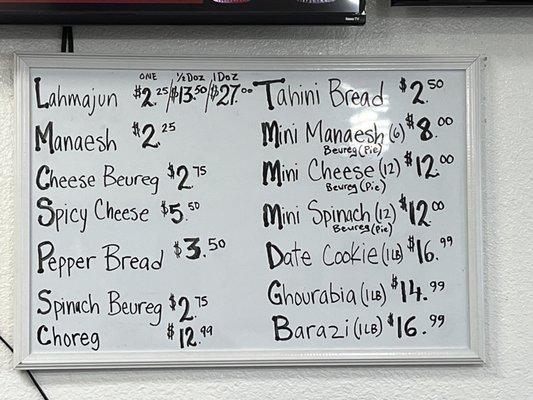 Roku
ONE ½ DOZ 1 DOZ
Lahmajun $2.25/$13.50/$27.00
Manaesh $2.25
Cheese Beureg $2.75
Spicy Cheese $5.50
Pepper Bread $3.50
Spinach Beureg $2.75
Choreg $12.99
Tahini Bread $2.50
Mini Manaesh (6) $8.00
Beureg (Pie)
Mini Cheese (12) $12.00
Beureg (Pie)
Mini Spinach (12) $12.00
Beureg (Pie)
Date Cookie (1LB) $16.99
Ghourabia (1LB) $14.99
Barazi (1LB) $16.99